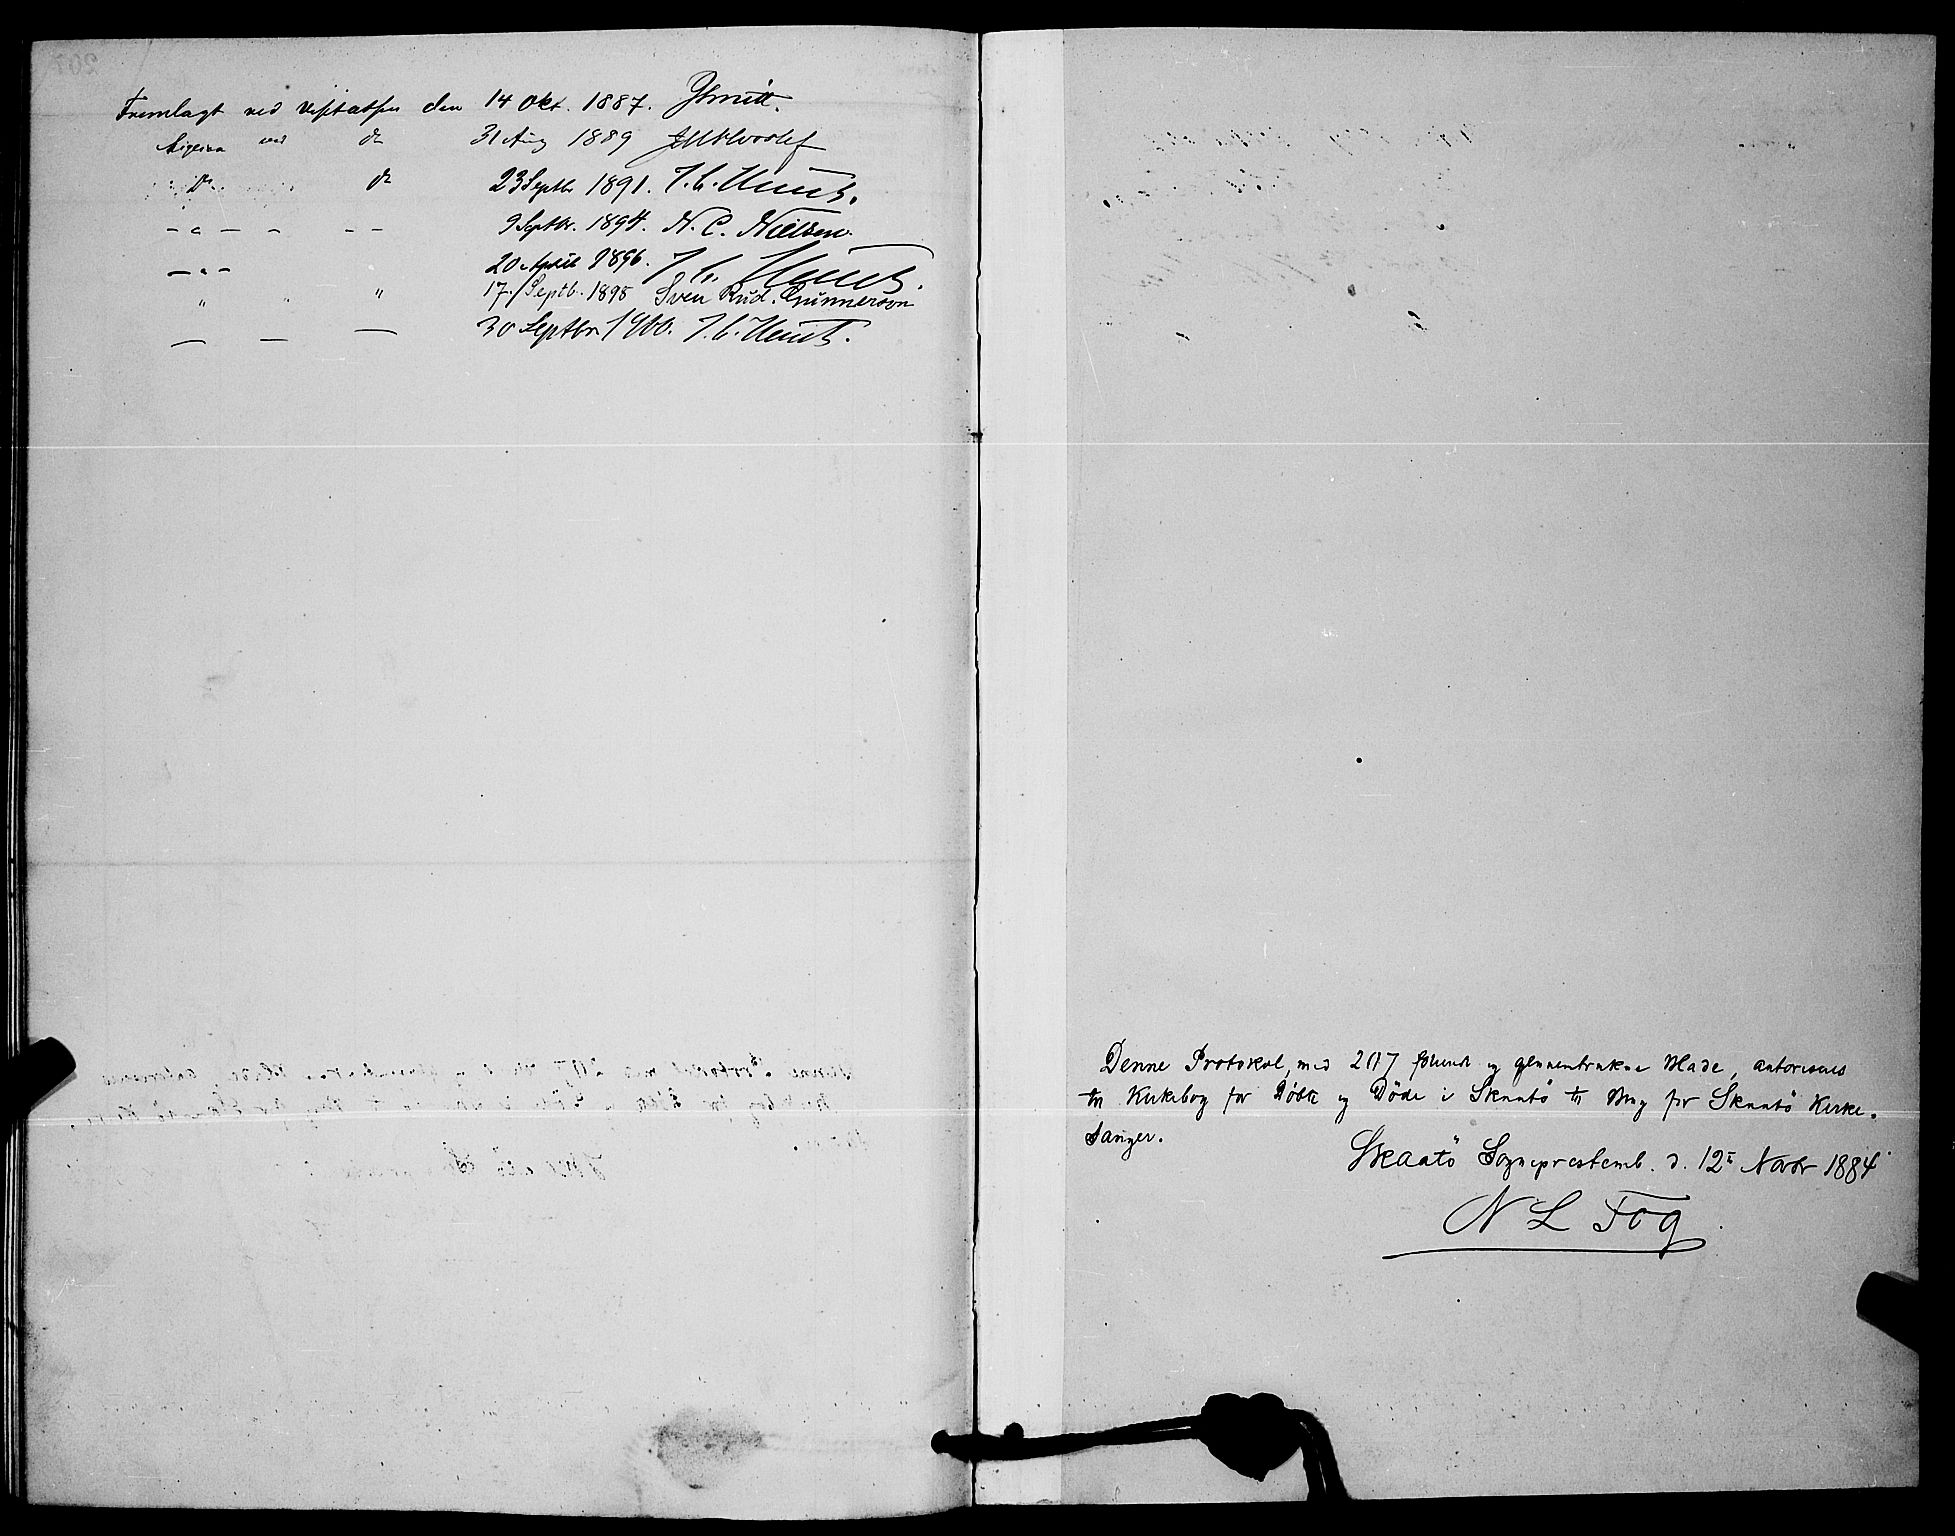 Fremlagt ved Visitatsen den 14 Okt. 1887. JSmitt.
ligesaa ved do 31 Aug 1889
Do do 23 Septbr 1891. J. C. Heuch.
- " - - - - 9 Septbr. 1894. N. C. Nielsen.
- " - 20 April 1896. J. C. Heuch.
" " " 17. Septb. 1898 Sven Rud. Gunnerson
— — — 30 Septbr 1900. J. C. Heuch.
Denne Protokol, med 207 folierede og gjennemtrukne Blade, autoriseres
til Kirkebog for Døbte og Døde i Skaatö til Brug for Skaatö Kirke-
sanger.
Skaatö Sogneprestemb. d. 12te Novbr 1884
N L Fog